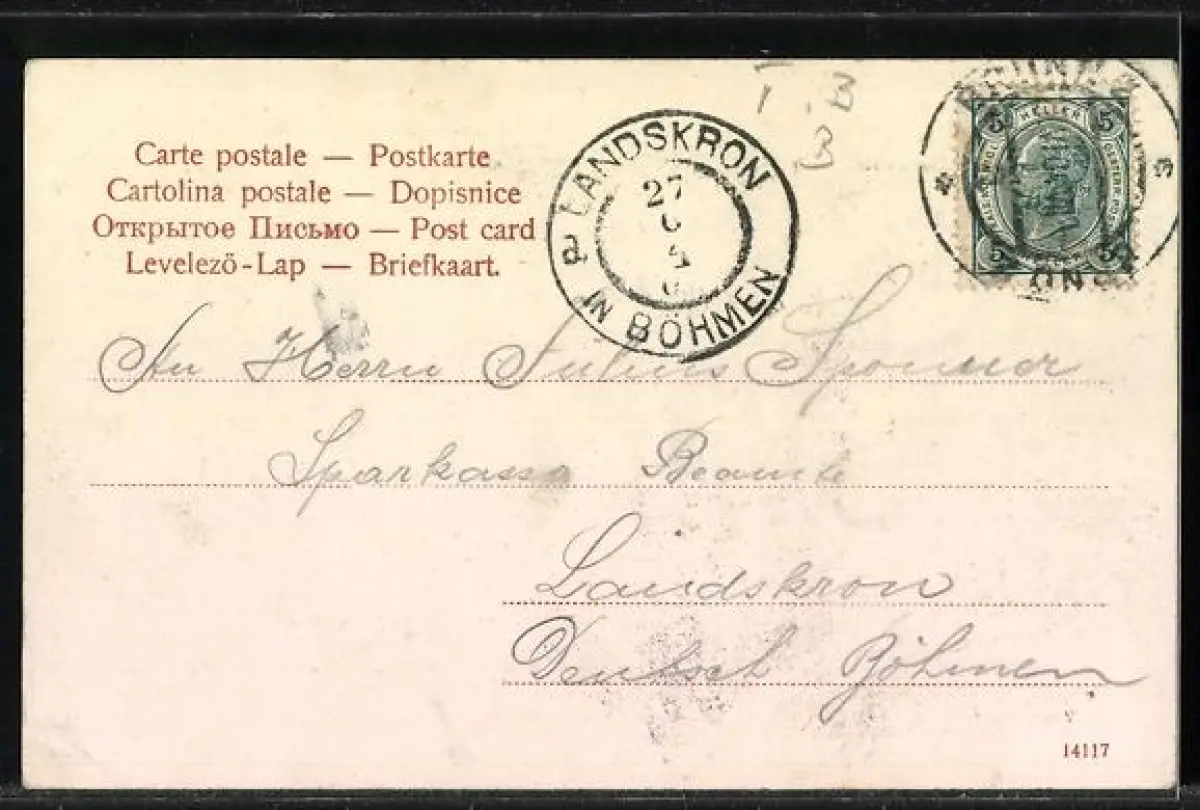 Carte postale — Postkarte
Cartolina postale — Dopisnice
Открытое Письмо — Post card
Levelező-Lap — Briefkaart.
LANDSKRON
IN BÖHMEN
27
T. B
3
5 HELLER 5
5 5
An Herrn Julius Sponner
Sparkassa Beamte
Landskron
Deutsch Böhmen
14117